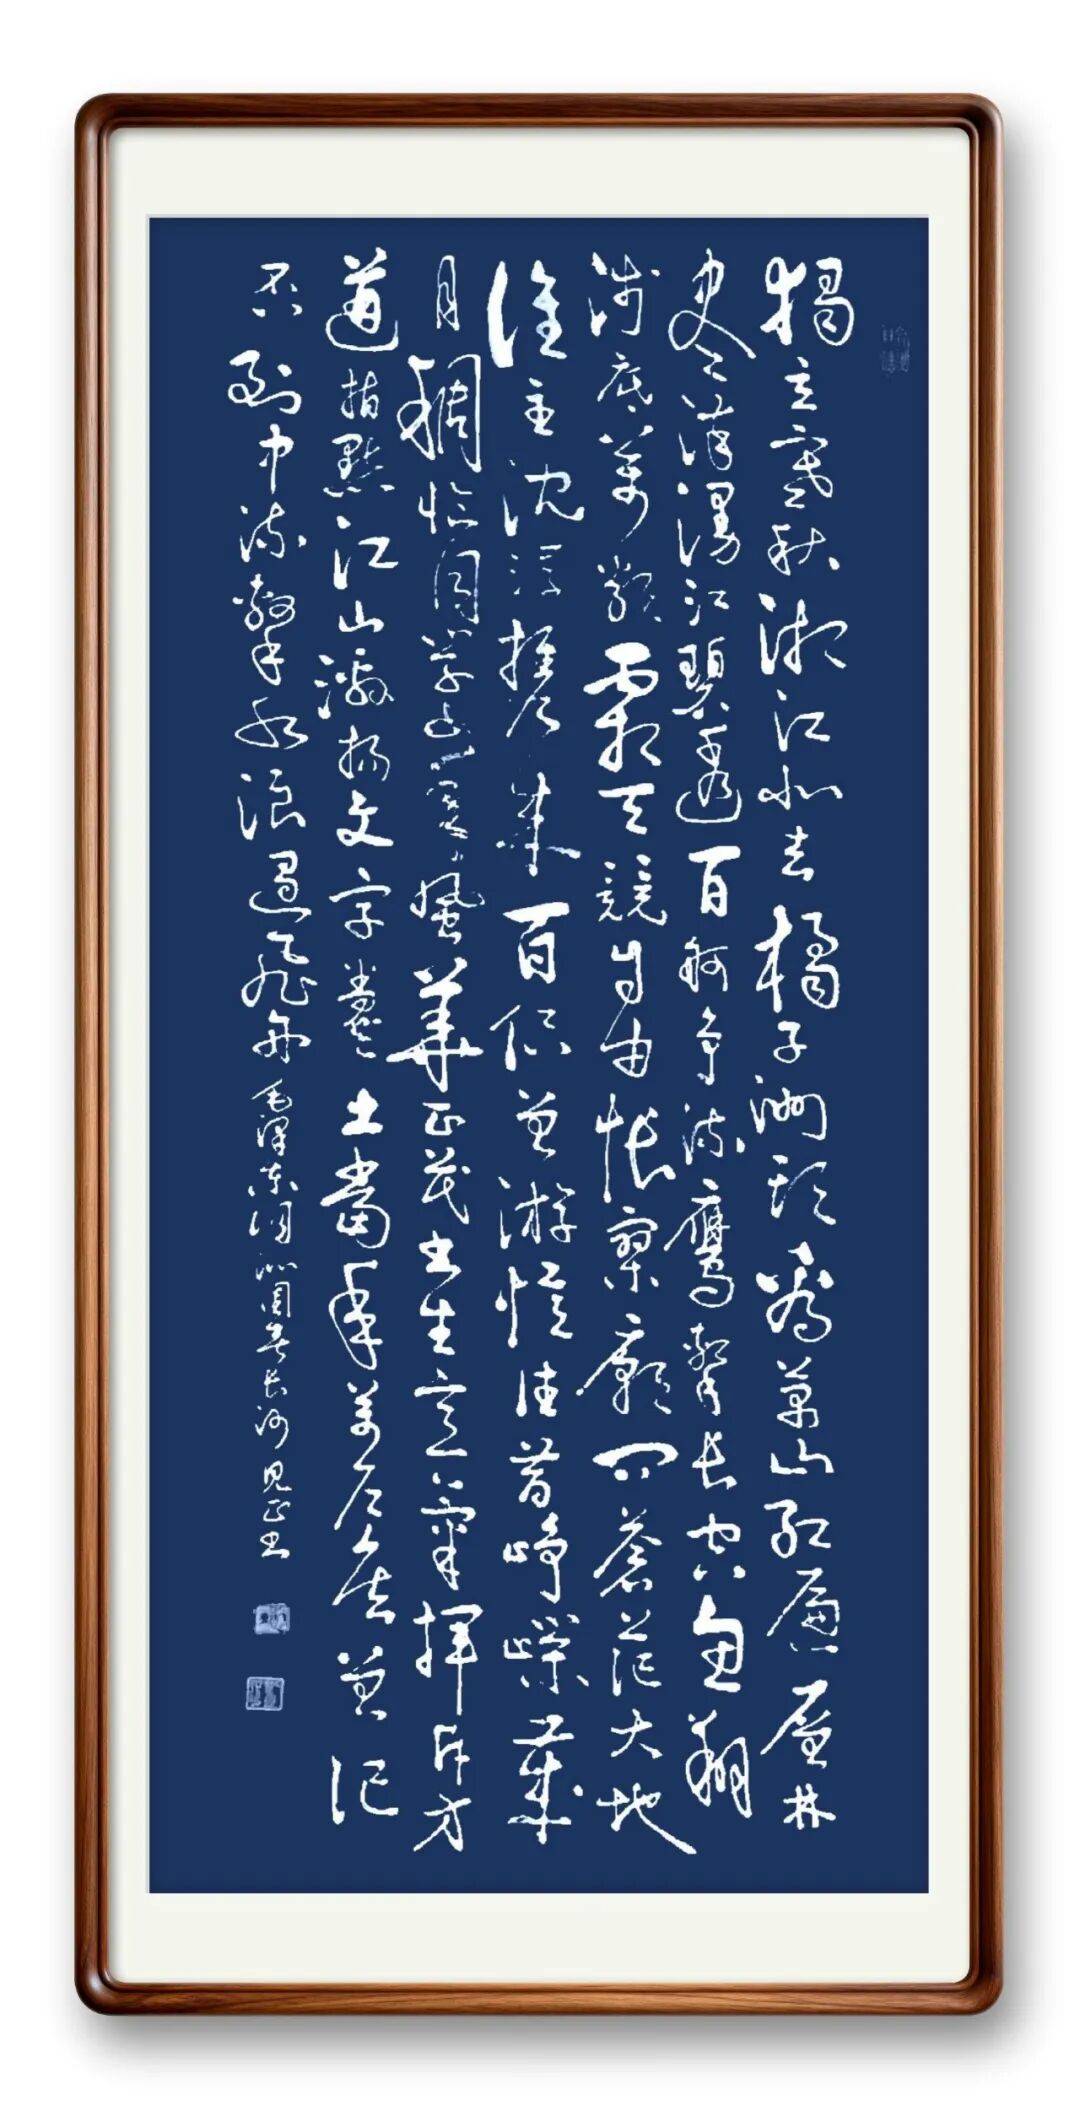 獨立寒秋湘江北去橘子洲頭看萬山紅遍層林
盡染漫江碧透百舸争流鷹擊長空魚翔
淺底萬類霜天競自由悵寥廓問蒼茫大地
誰主沈浮携來百侣曾游憶往昔崢嶸歲
月稠恰同學少年風華正茂書生意氣揮斥方
遒指點江山激揚文字糞土當年萬户侯曾記
否到中流擊水浪遏飛舟毛澤東詞沁園春長沙見正書